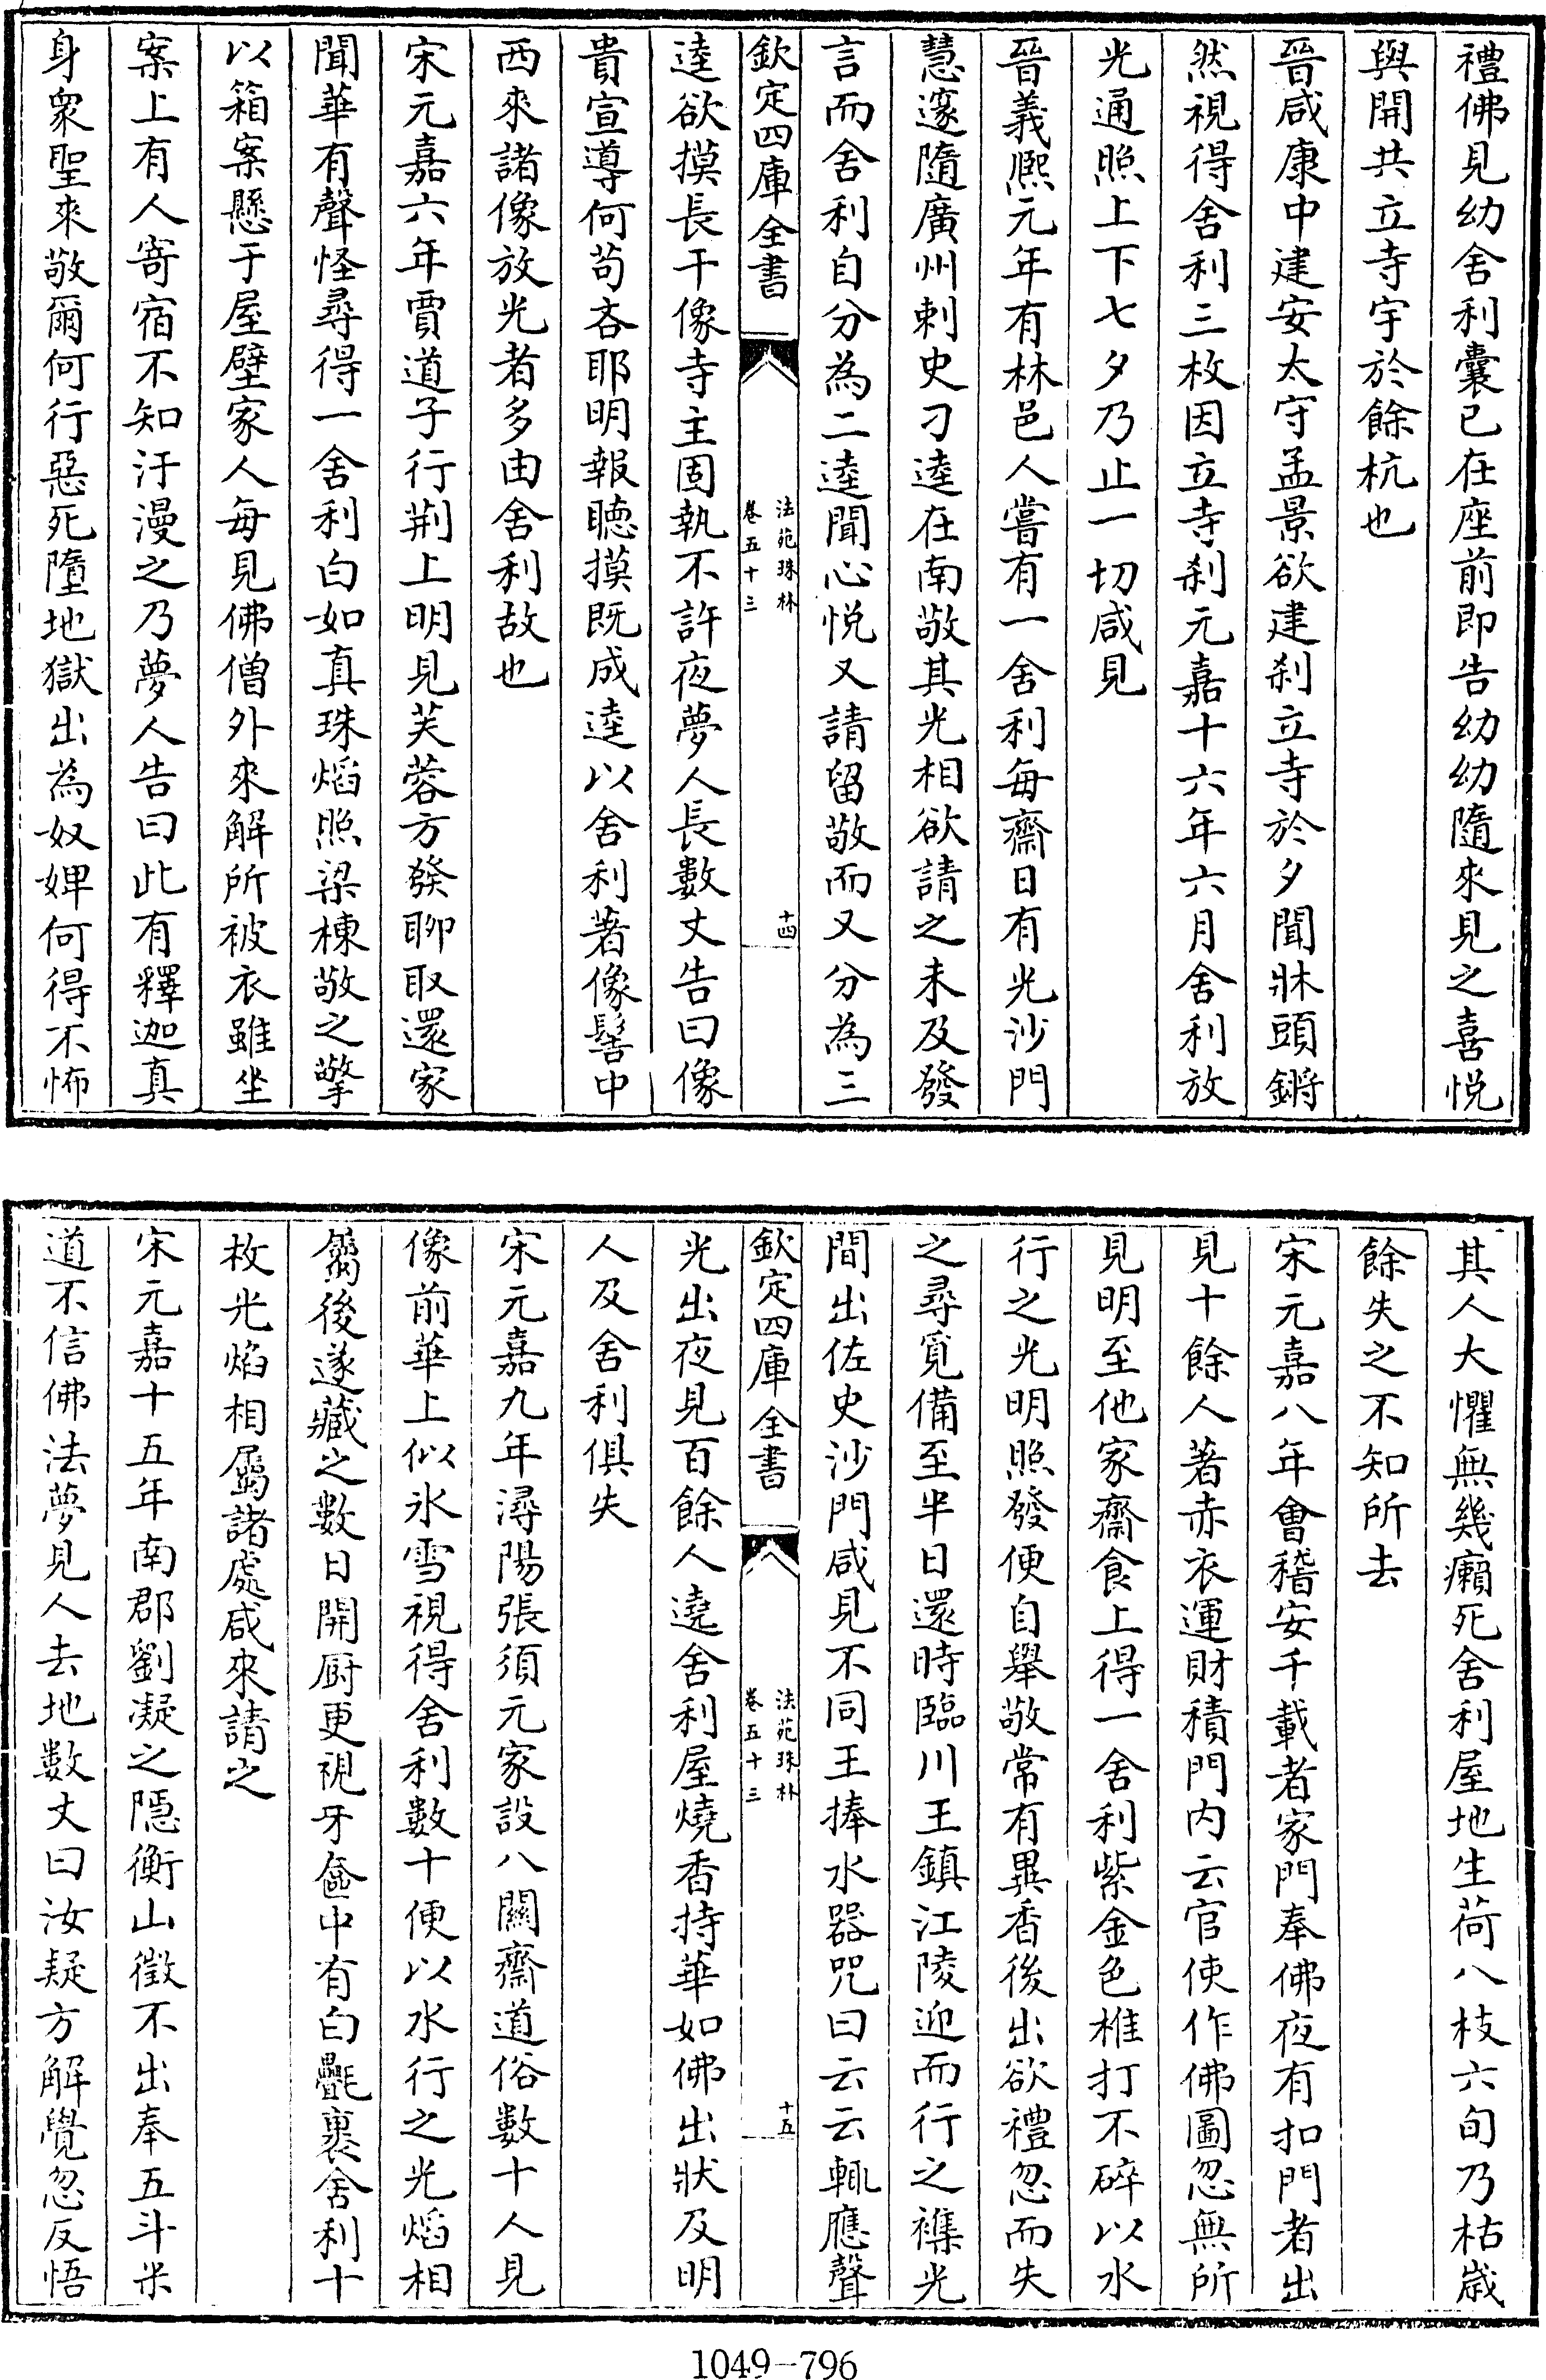 禮佛見幼舍利囊已在座前即告幼幼隨來見之喜悦
與開共立寺宇於餘杭也
晉咸康中建安太守孟景欲建刹立寺於夕聞牀頭鏘
然視得舍利三枚因立寺刹元嘉十六年六月舍利放
光通照上下七夕乃止一切咸見
晉義熈元年有林邑人嘗有一舍利每齋日有光沙門
慧邃隨廣州刺史刁逵在南敬其光相欲請之未及發
言而舍利自分為二逵聞心悦又請留敬而又分為三
欽定四庫全書
法苑珠林
卷五十三
十四
逵欲摸長干像寺主固執不許夜夢人長數丈告曰像
貴宣導何茍吝耶明報聽摸既成逵以舍利著像髻中
西來諸像放光者多由舍利故也
宋元嘉六年賈道子行荆上明見芙蓉方發聊取還家
聞華有聲怪尋得一舍利白如真珠熖照梁棟敬之擎
以箱案懸于屋壁家人每見佛僧外來解所被衣雖坐
案上有人寄宿不知汙漫之乃夢人告曰此有釋迦真
身衆聖來敬爾何行惡死墮地獄出為奴婢何得不怖
其人大懼無幾癩死舍利屋地生荷八枝六旬乃枯歳
餘失之不知所去
宋元嘉八年會稽安千載者家門奉佛夜有扣門者出
見十餘人著赤衣運財積門内云官使作佛圖忽無所
見明至他家齋食上得一舍利紫金色椎打不碎以水
行之光明照發便自舉敬常有異香後出欲禮忽而失
之尋覓備至半日還時臨川王鎮江陵迎而行之襍光
間出佐史沙門咸見不同王捧水器咒曰云云輒應聲
欽定四庫全書
法苑珠林
卷五十三
十五
光出夜見百餘人遶舍利屋燒香持華如佛出狀及明
人及舍利俱失
宋元嘉九年潯陽張須元家設八關齋道俗數十人見
像前華上似氷雪視得舍利數十便以水行之光熖相
屬後遂藏之數日開厨更視牙奩中有白㲲裹舍利十
枚光焰相屬諸處咸來請之
宋元嘉十五年南郡劉凝之隠衡山徴不出奉五斗米
道不信佛法夢見人去地數丈曰汝疑方解覺忽反悟
1049-796